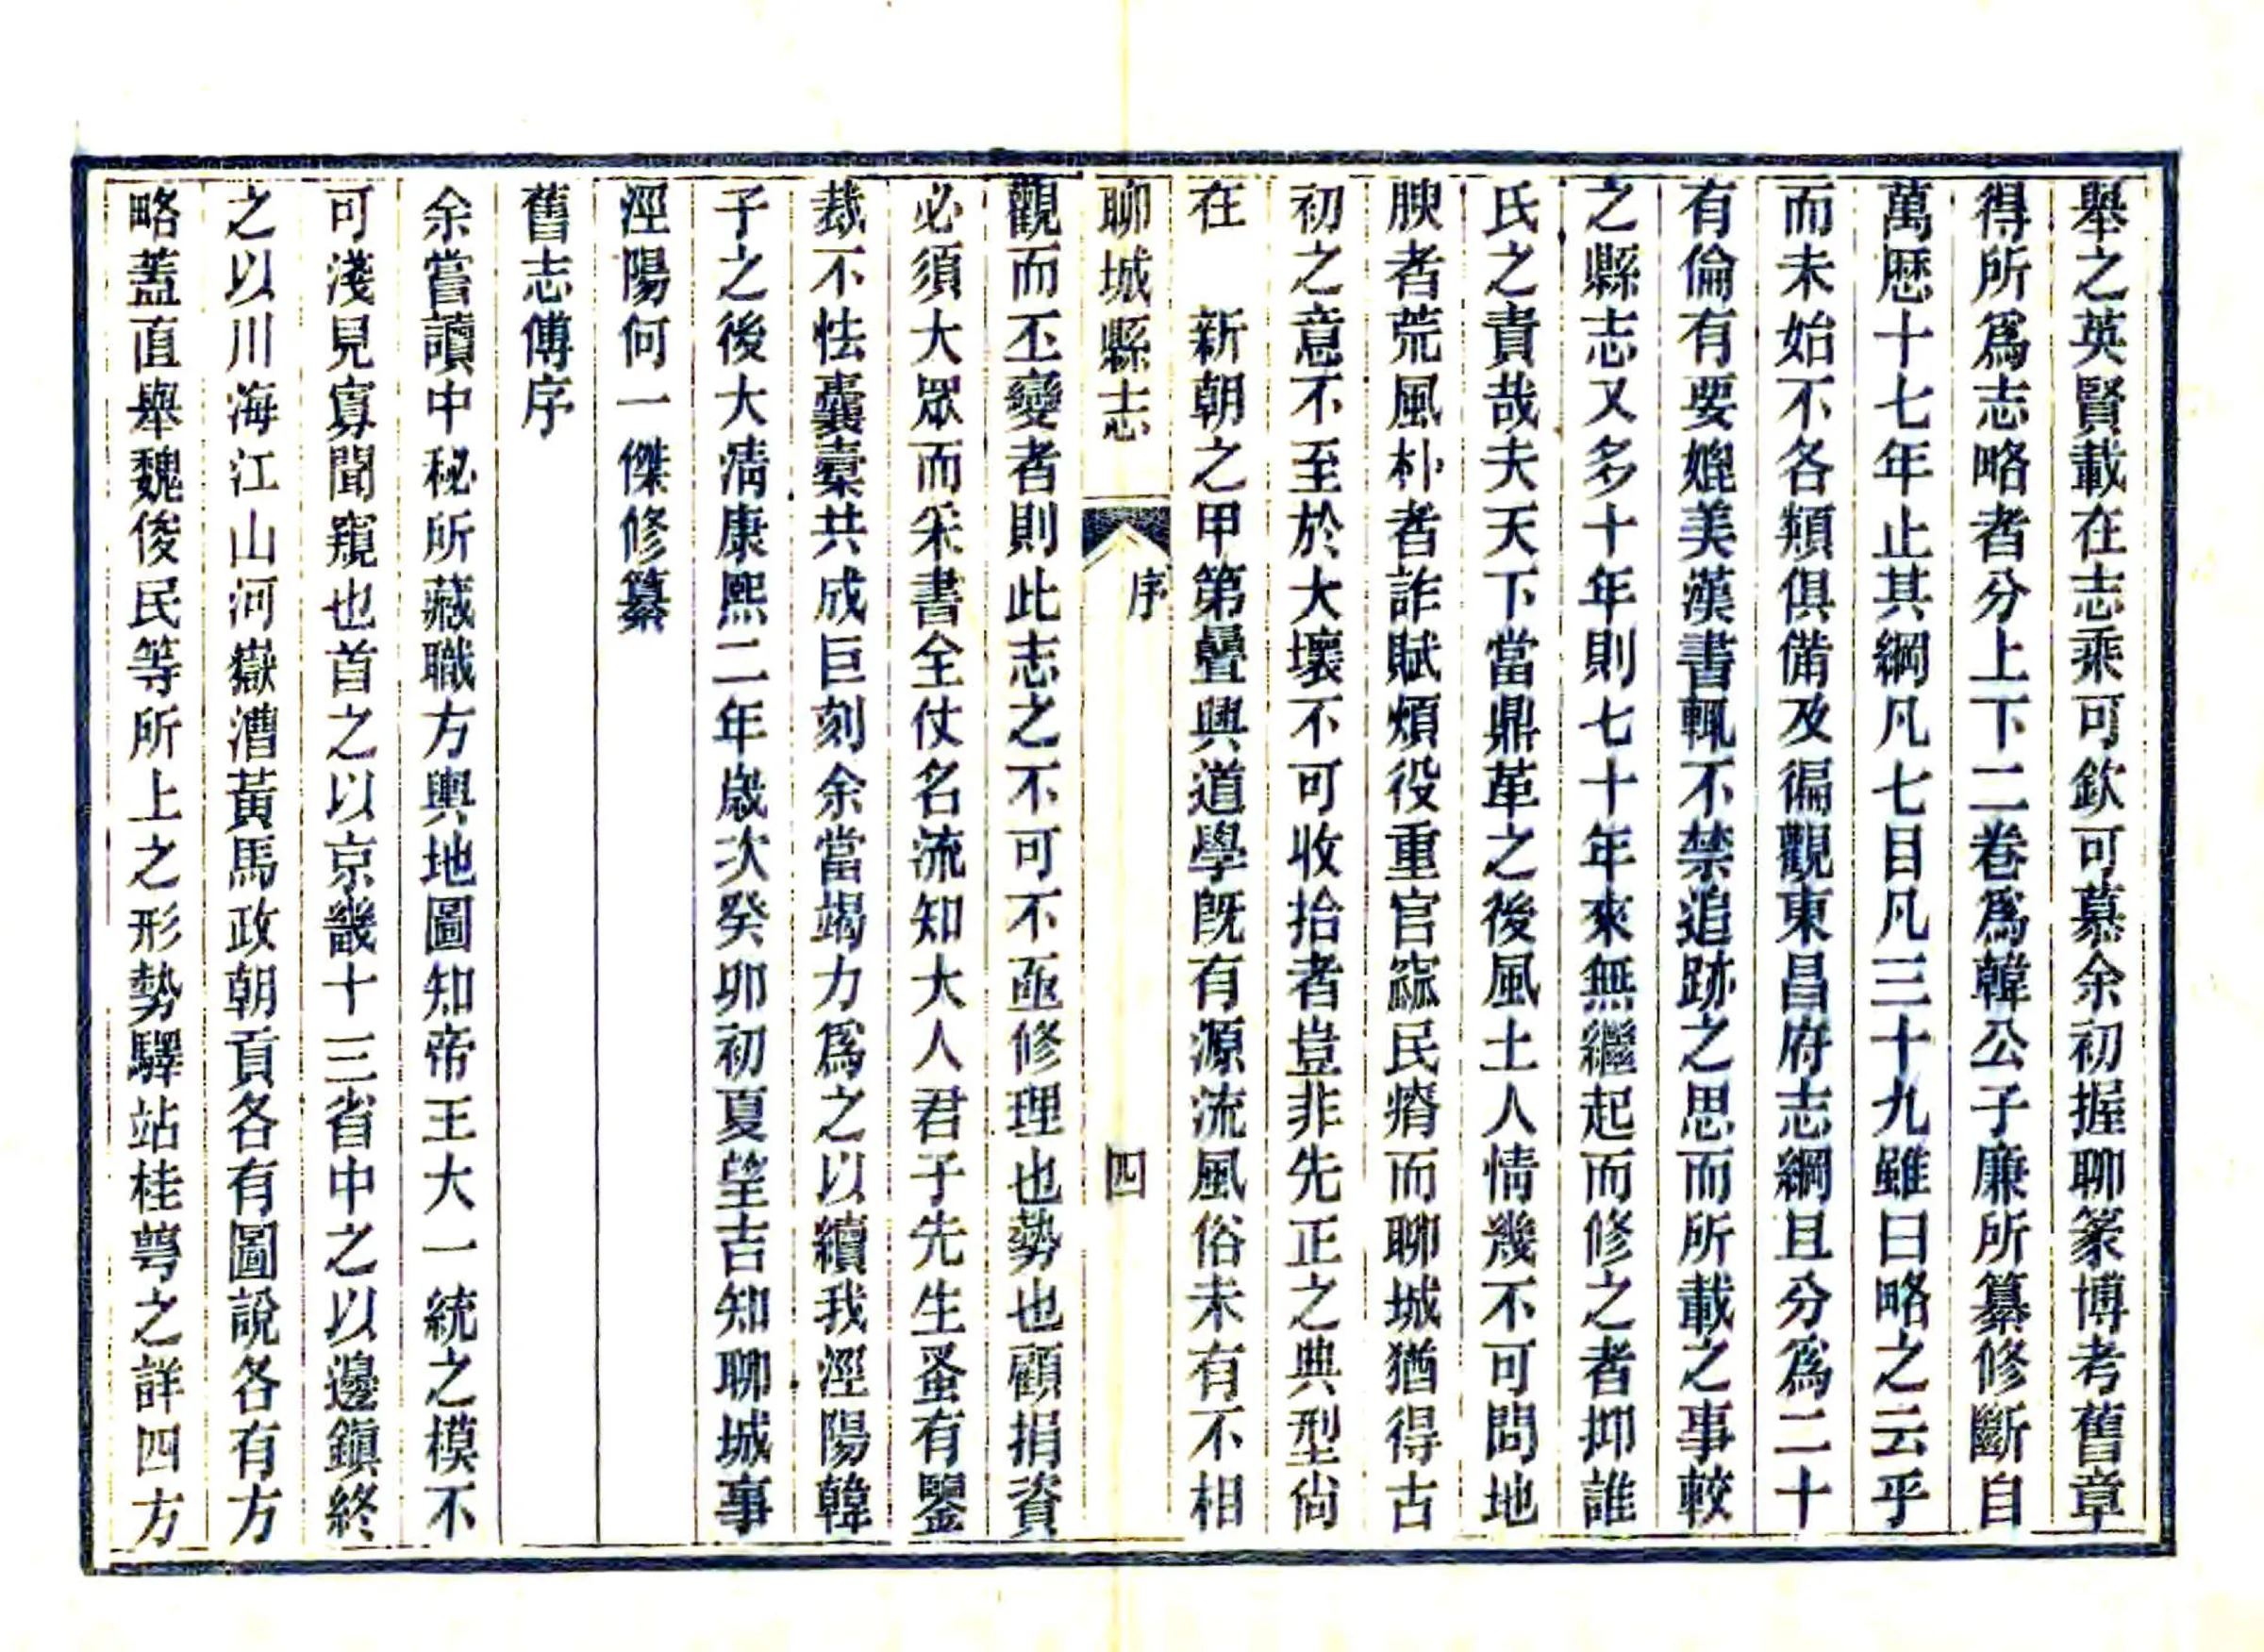 舉之英賢載在志乘可欽可慕余初握聊篆博考舊章
得所爲志略者分上下二卷爲韓公子廉所纂修斷自
萬歷十七年止其綱凡七目凡三十九雖曰略之云乎
而未始不各類俱備及徧觀東昌府志綱且分爲二十
有倫有要媲美漢書輒不禁追跡之思而所載之事較
之縣志又多十年則七十年來無繼起而修之者抑誰
氏之責哉夫天下當鼎革之後風土人情幾不可問地
腴者荒風朴者詐賦煩役重官窳民瘠而聊城猶得古
初之意不至於大壞不可收拾者豈非先正之典型尙
在　新朝之甲第疊興道學旣有源流風俗未有不相
聊城縣志　序　四
觀而丕變者則此志之不可不亟修理也勢也顧捐資
必須大眾而采書全仗名流知大人君子先生蚤有鑒
裁不怯囊橐共成巨刻余當竭力爲之以續我涇陽韓
子之後大淸康熙二年歲次癸卯初夏望吉知聊城事
涇陽何一傑修纂
舊志傅序
余嘗讀中秘所藏職方輿地圖知帝王大一統之模不
可淺見寡聞窺也首之以京畿十三省中之以邊鎭終
之以川海江山河嶽漕黃馬政朝貢各有圖說各有方
略蓋直舉魏俊民等所上之形勢驛站桂萼之詳四方